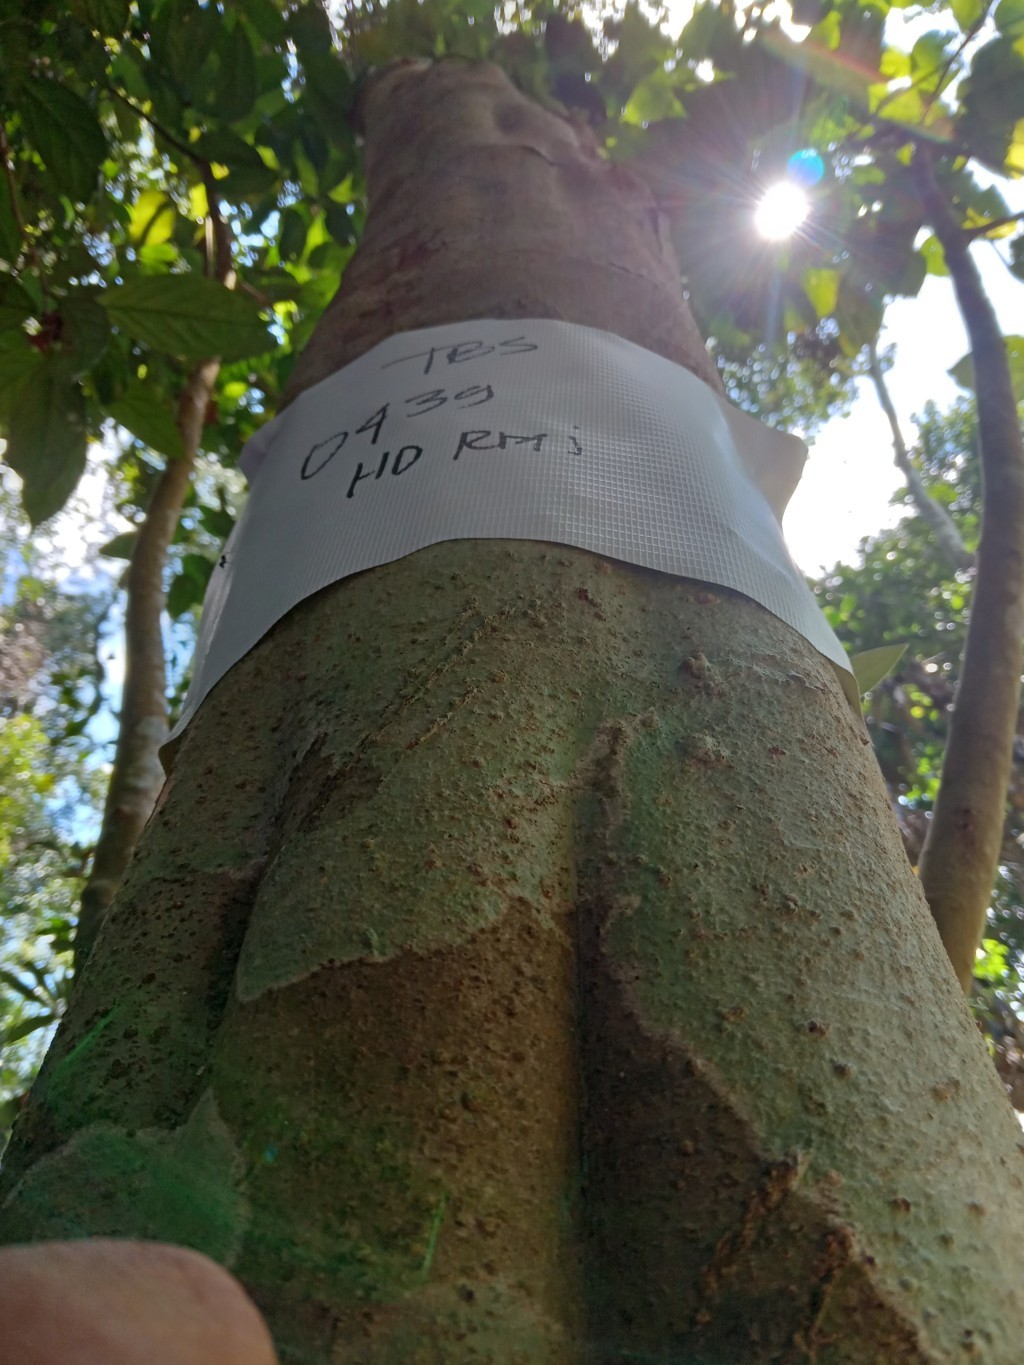 TBS
0439
HD RMj